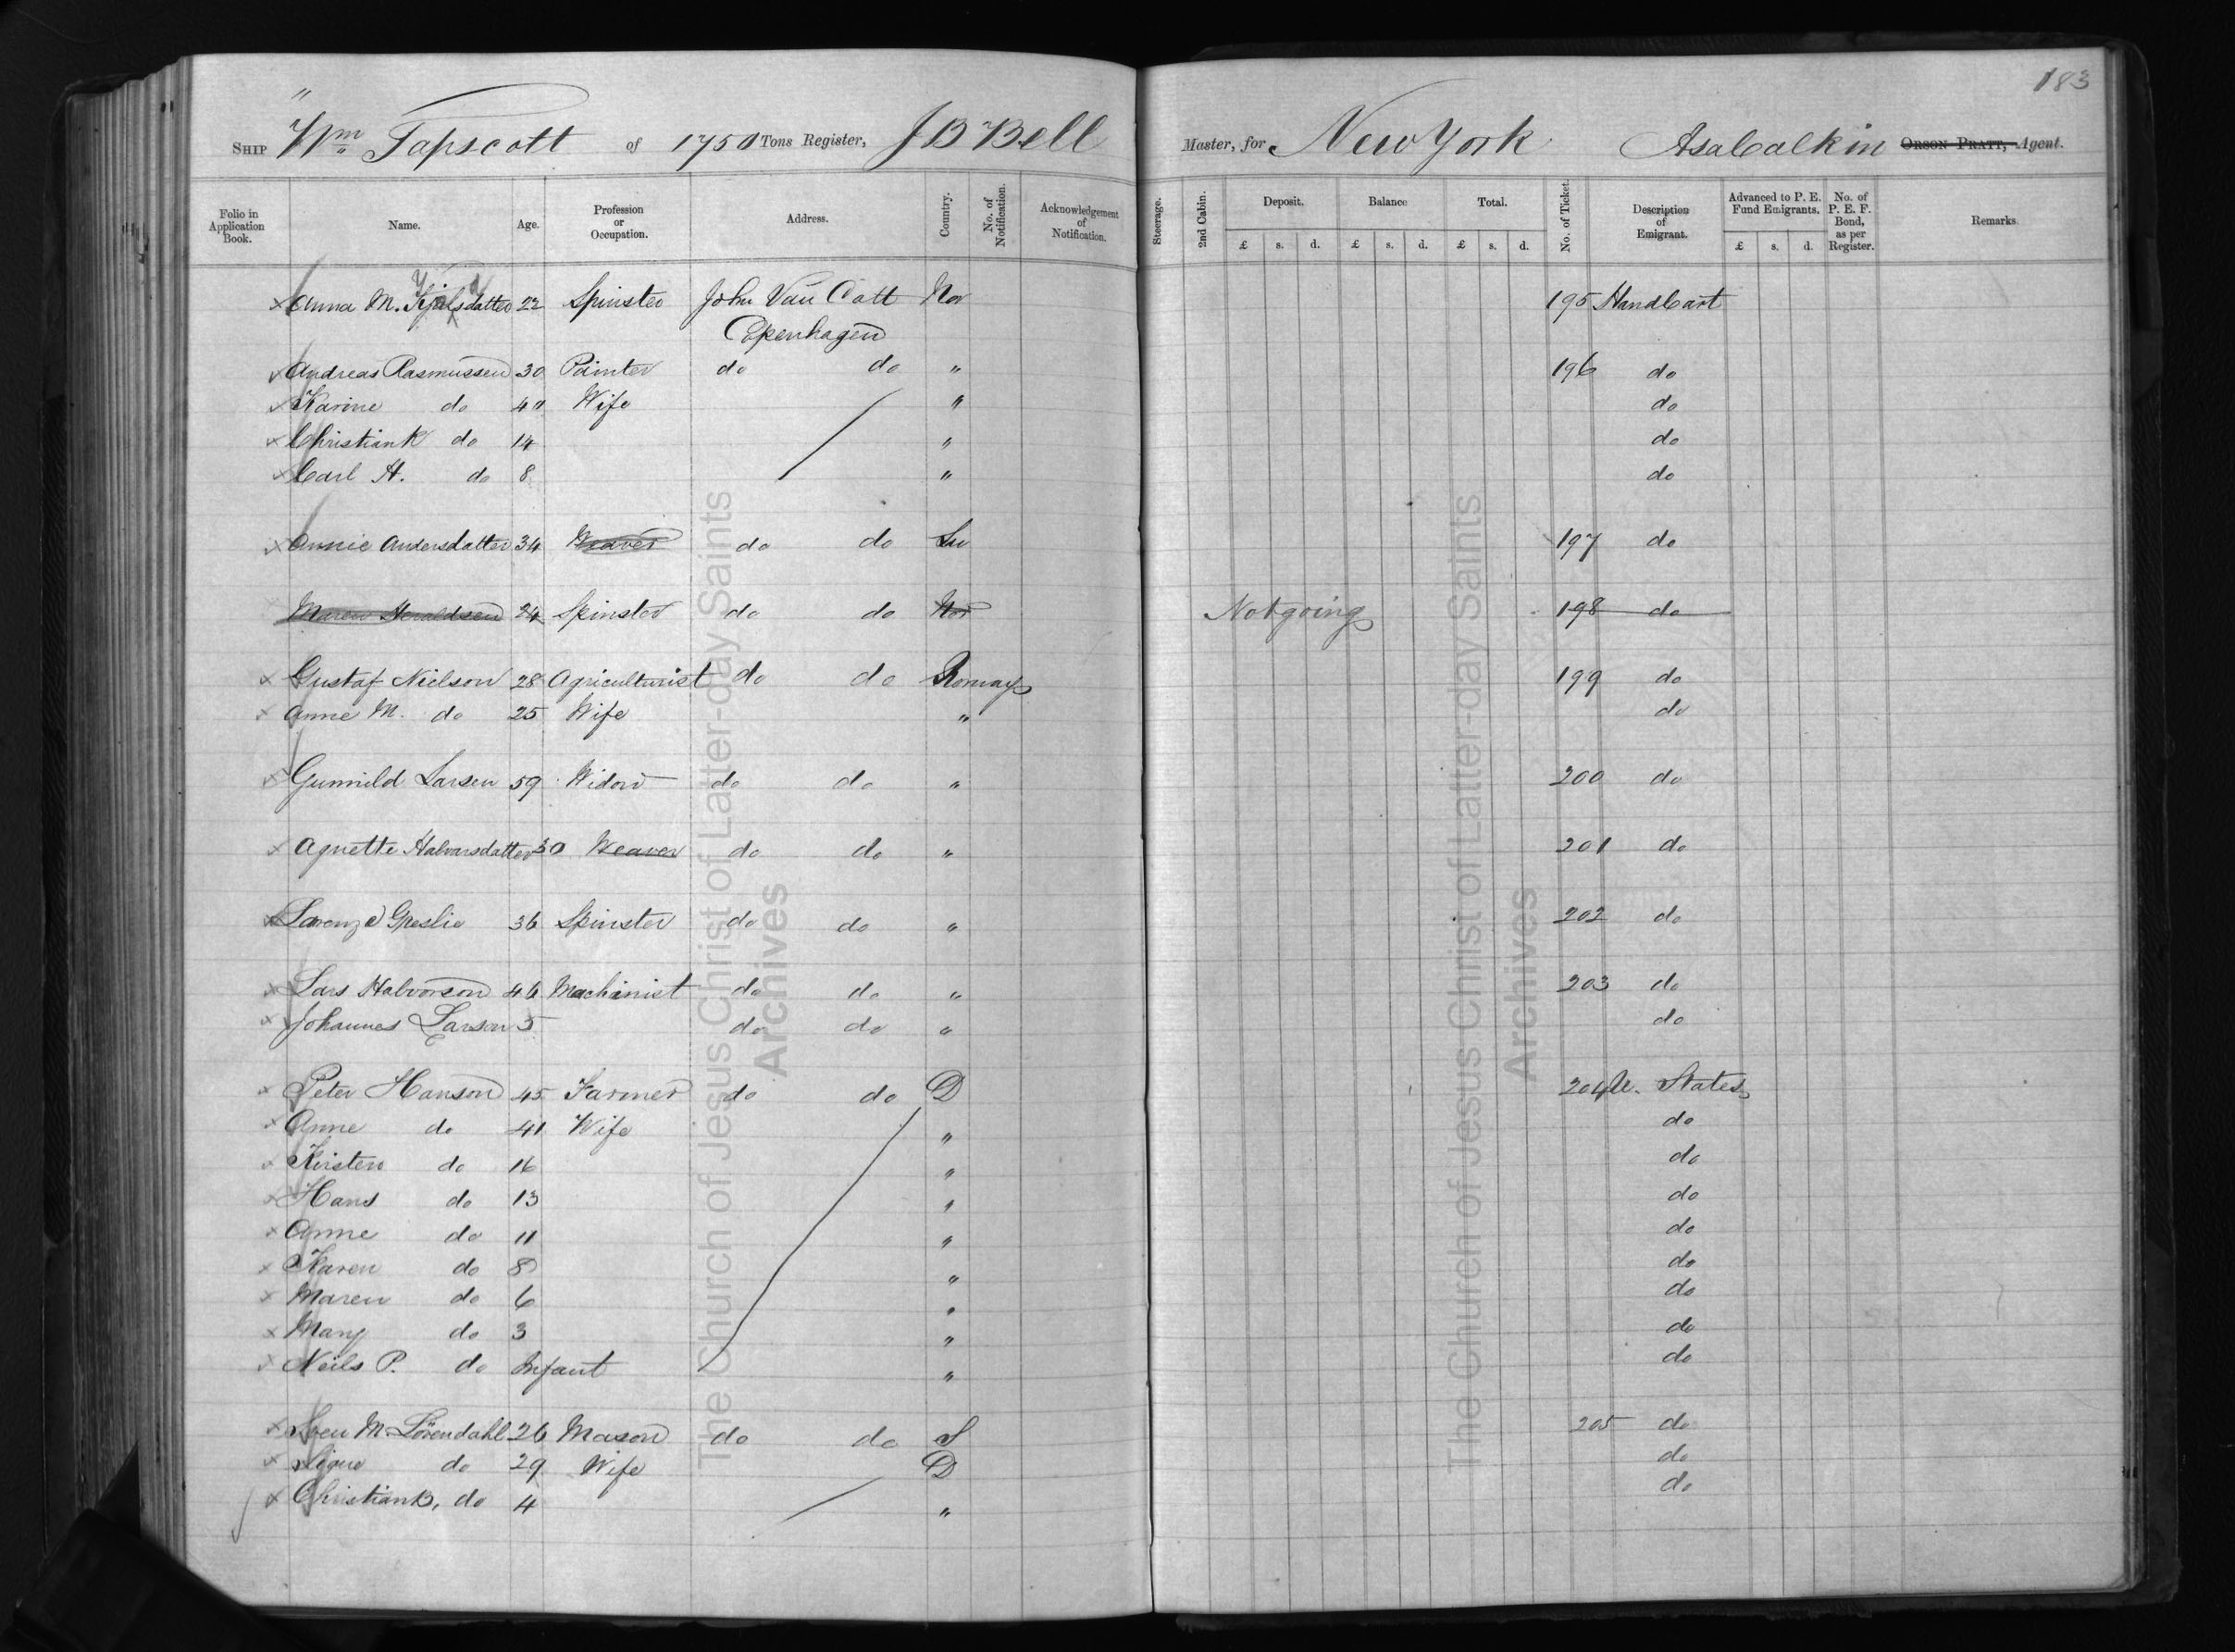 183
SHIP "Wm Tapscott of 1750 Tons Register, J B Bell Master, for New York Asa Calkin ORSON PRATT, Agent.
Folio in Application Book. Name. Age. Profession or Occupation. Address. Country. No. of Notification. Acknowledgement of Notification. Steerage. 2nd Cabin. Deposit. £ s. d. Balance £ s. d. Total. £ s. d. No. of Ticket. Description of Emigrant. Advanced to P. E. Fund Emigrants. £ s. d. No. of P. E. F. Bond, as per Register. Remarks.
x Anna M. 22 Spinster John Van Cott Nor 195 HandCart
Copenhagen
Andreas Rasmussen 30 Painter do do " 196 do
Karine do 40 Wife " do
x Christian K do 14 " do
x Carl H. do 8 " do
x Annie Andersdatter 34 Weaver do do Sw 197 do
Maren Heraldsen 24 Spinster do do Nor Not going 198 do
x Gustaf Nielson 28 Agriculturist do do Norway 199 do
x Anne M. do 25 Wife " do
Gunnild Larsen 59 Widow do do " 200 do
x Agnette Halvarsdatter 30 Weaver do do " 201 do
x 36 Spinster do do " 202 do
x Lars Halvorson 46 Machinist do do " 203 do
x Johannes Larson 5 do do " do
x Peter Hanson 45 Farmer do do D 204 U. States
x Anne do 41 Wife " do
x Kirsten do 16 " do
x Hans do 13 " do
x Anne do 11 " do
x Karen do 8 " do
x Maren do 6 " do
x Mary do 3 " do
x Neils P. do Infant " do
x Sven M. Lövendahl 26 Mason do do S 205 do
x Signe do 29 Wife D do
x Christian B, do 4 " do
The Church of Jesus Christ of Latter-day Saints
Archives
The Church of Jesus Christ of Latter-day Saints
Archives